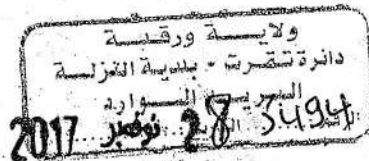 ولايـــة ورقـــلة
دائرة تقرت - بلدية النزلـة
البريـــد الـــوارد
2017 نوفمبر 28 3494